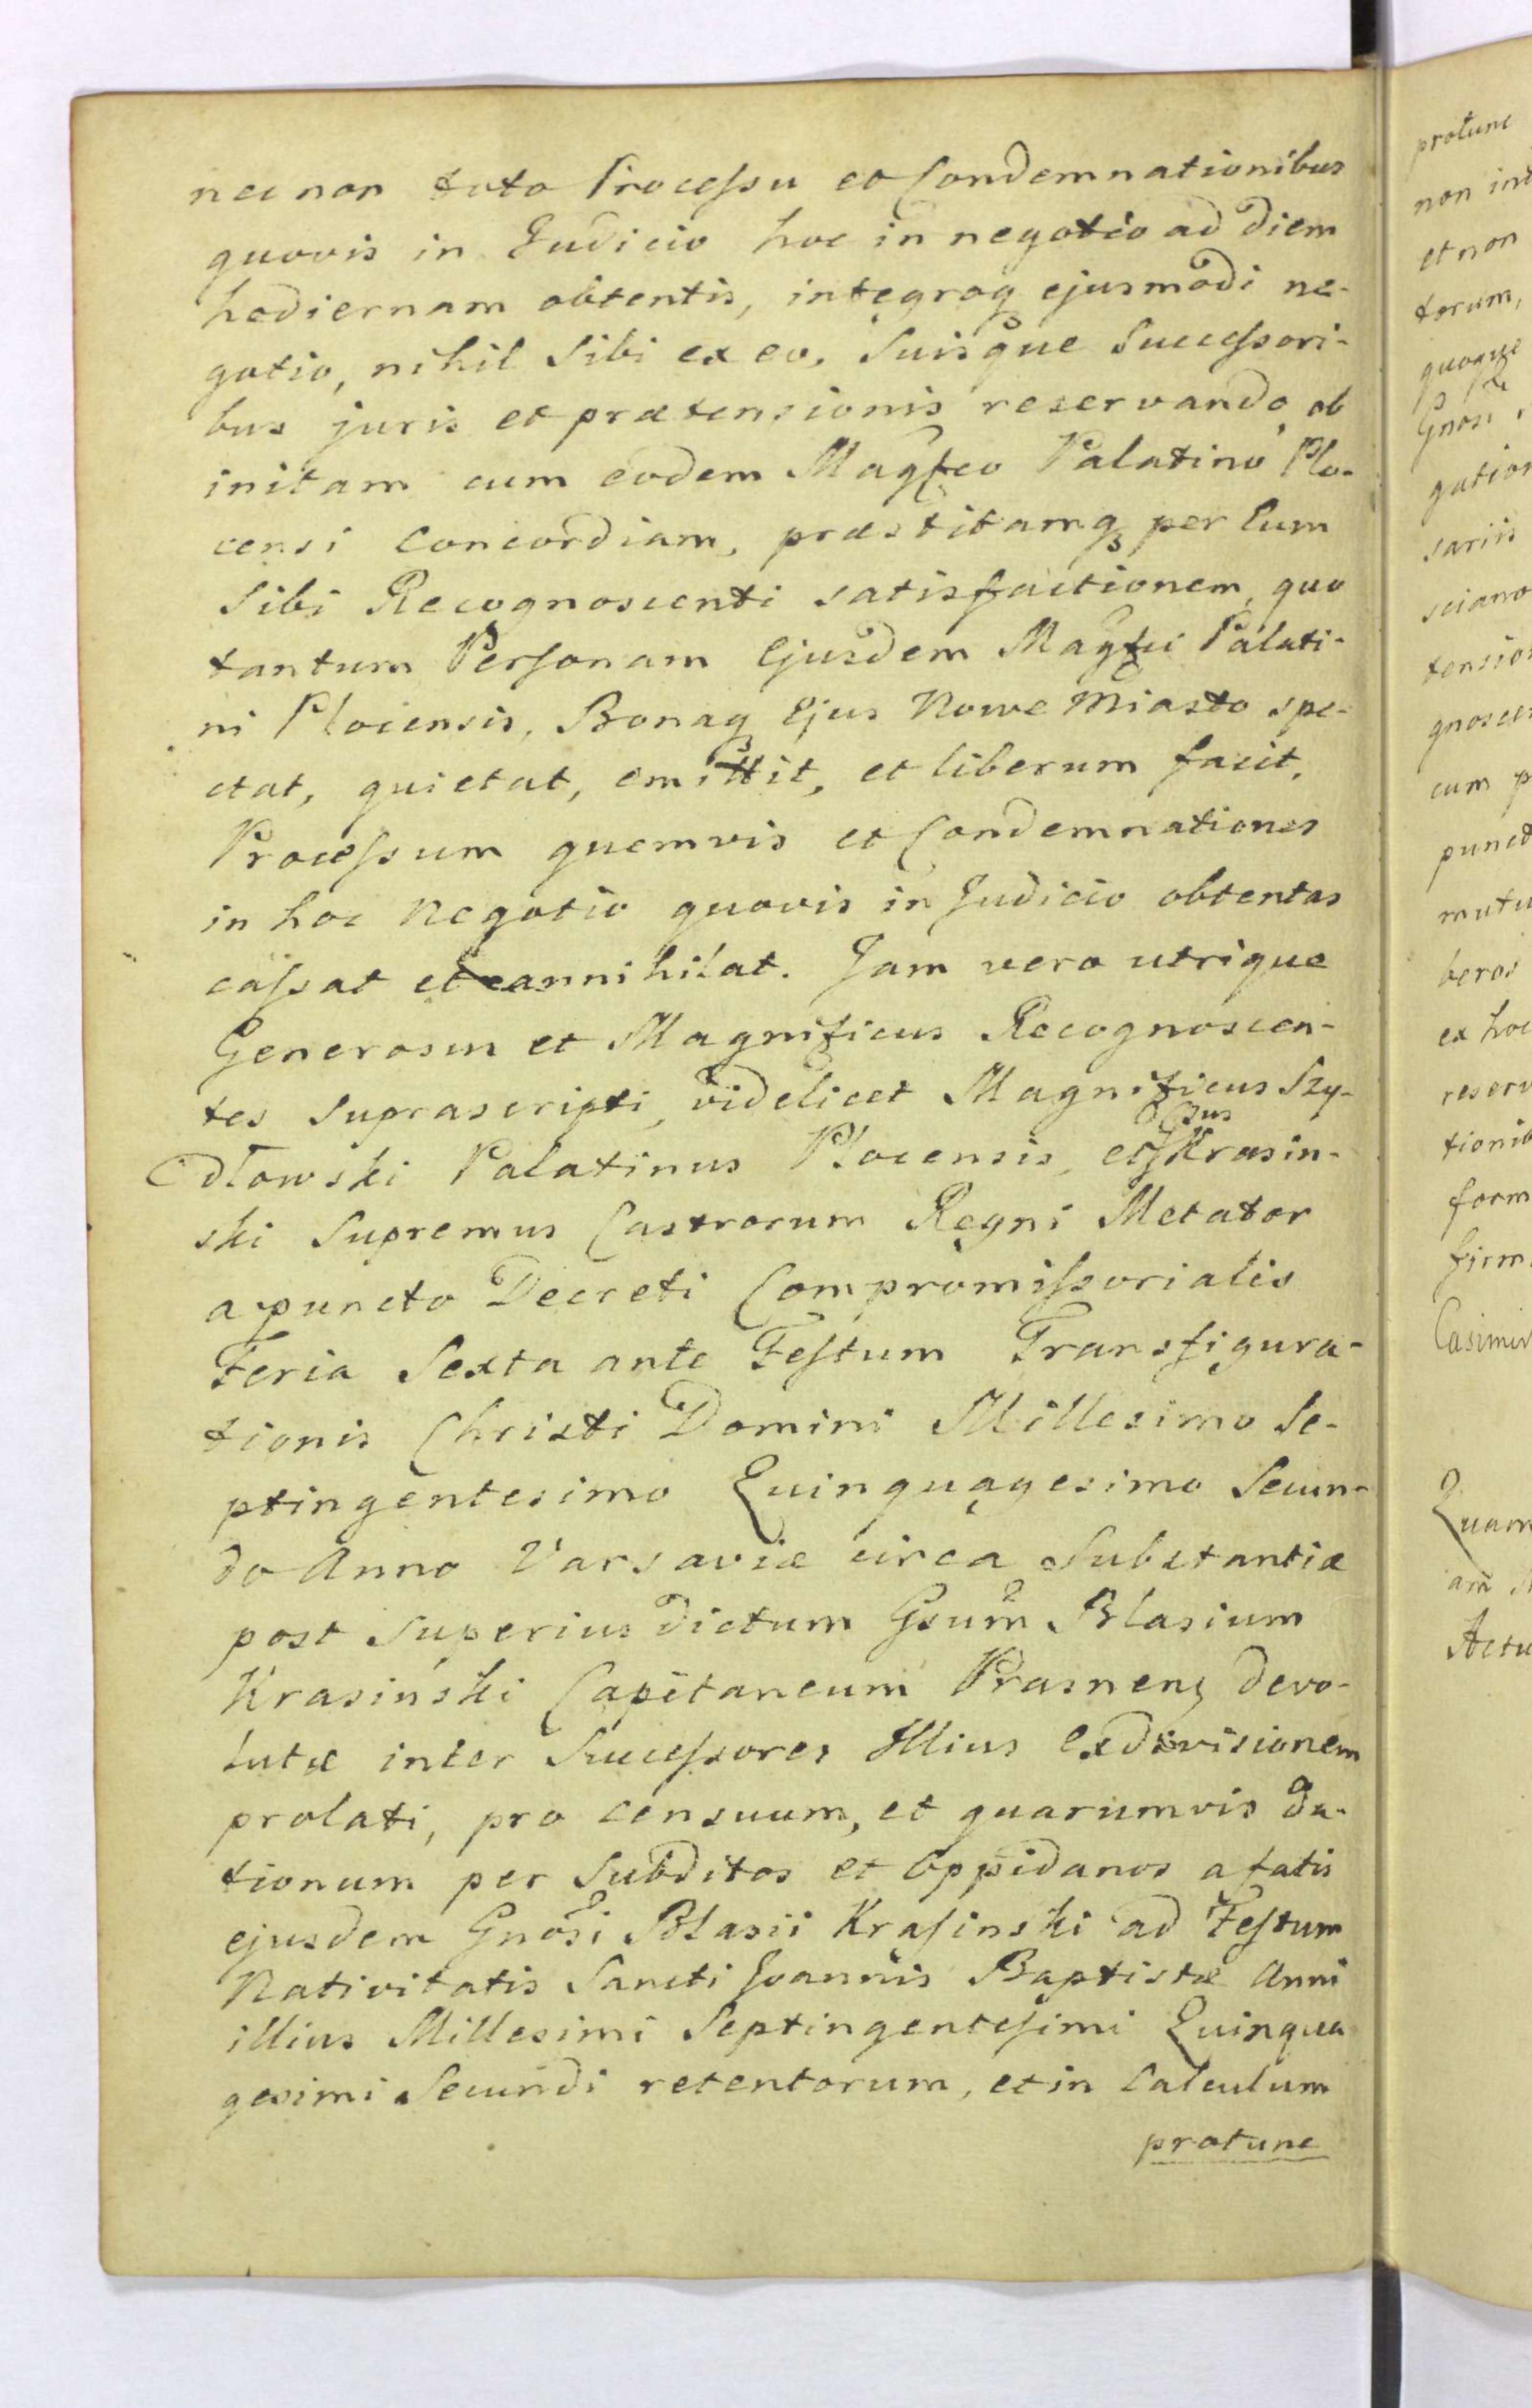 nec non toto Processu et Condemnationibus
quovis in Judicio hoc in negotio ad diem
hodiernam obtentis, integroq ejusmodi ne-
gotio, nihil sibi ex eo, suisque Successori-
bus juris et prætensionis reservando, ob
initam cum eodem Magfco Palatino Plo-
censi Concordiam, præstitamq per Eum
sibi Recognoscenti satisfactionem, quo
tantum Personam Ejusdem Magfci Palati-
ni Plocensis, Bonaq Ejus Nowe Miasto spe-
ctat, quietat, emittit, et liberum facit,
Processum quemvis et Condemnationes
in hoc Negotio quovis in Judicio obtentas
cassat et annihilat. Jam vero utrique
Generosus et Magnificus Recognoscen-
tes suprascripti, videlicet Magnificus Szy-
dłowski Palatinus Plocensis, et Gsus Krasin-
ski Supremus Castrorum Regni Metator
a puncto Decreti Compromissorialis
Feria Sexta ante Festum Transfigura-
tionis Christi Domini Millesimo Se-
ptingentesimo Quinquagesimo Secun-
do Anno Varsaviæ circa Substantiæ
post superius dictum Gsum Blasium
Krasiński Capitaneum Prasnens devo-
lutæ inter Successores Illius Exdivisionem
prolati, pro censuum, et quarumvis da-
tionum per Subditos et Oppidanos a fatis
ejusdem Gnosi Blasii Krasinski ad Festum
Nativitatis Sancti Joannis Baptistæ Anni
illius Millesimi Septingentesimi Quinqua
gesimi Secundi retentorum, et in Calculum
protunc
protunc
non int
et non
torum,
quoque
Gnosi
gation
sariis
sciano
tension
gnoscen
cum p
punct
mutu
beros
ex hoc
reserv
tionib
form
firm
Casimir
Quam
Actu